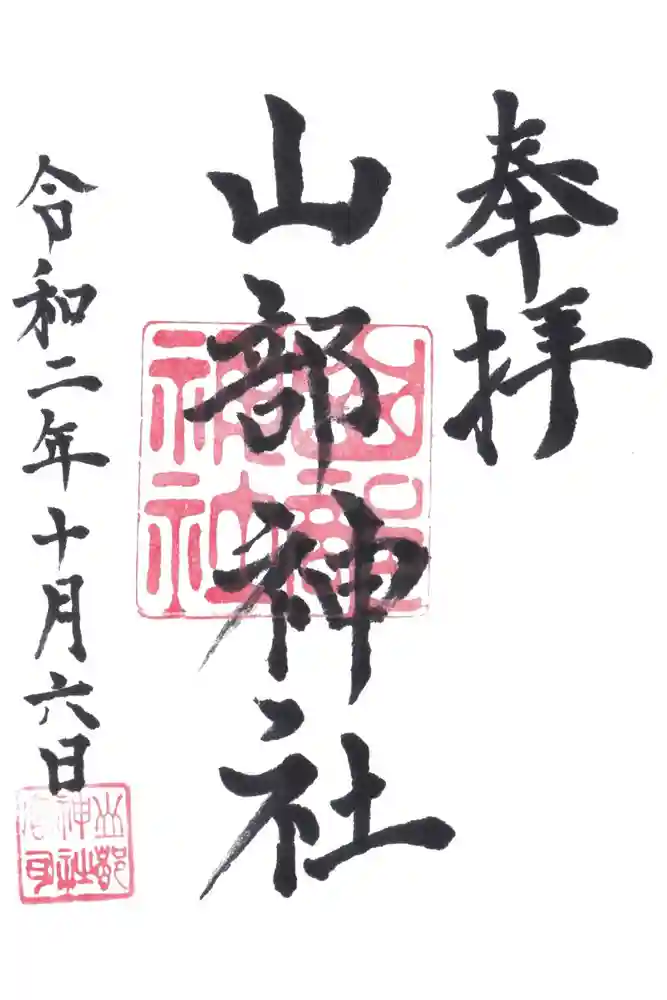 奉拝
山部神社
令和二年十月六日
山部神社